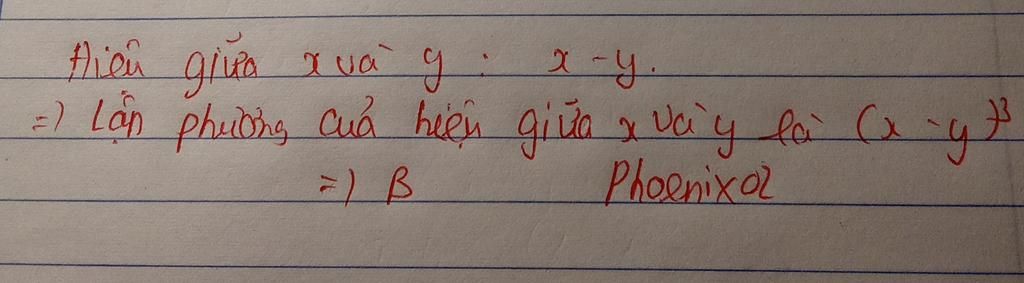 Hiệu giữa x và y : x - y.
=) Lập phương của hiệu giữa x và y là (x - y)³
=) B Phoenix02